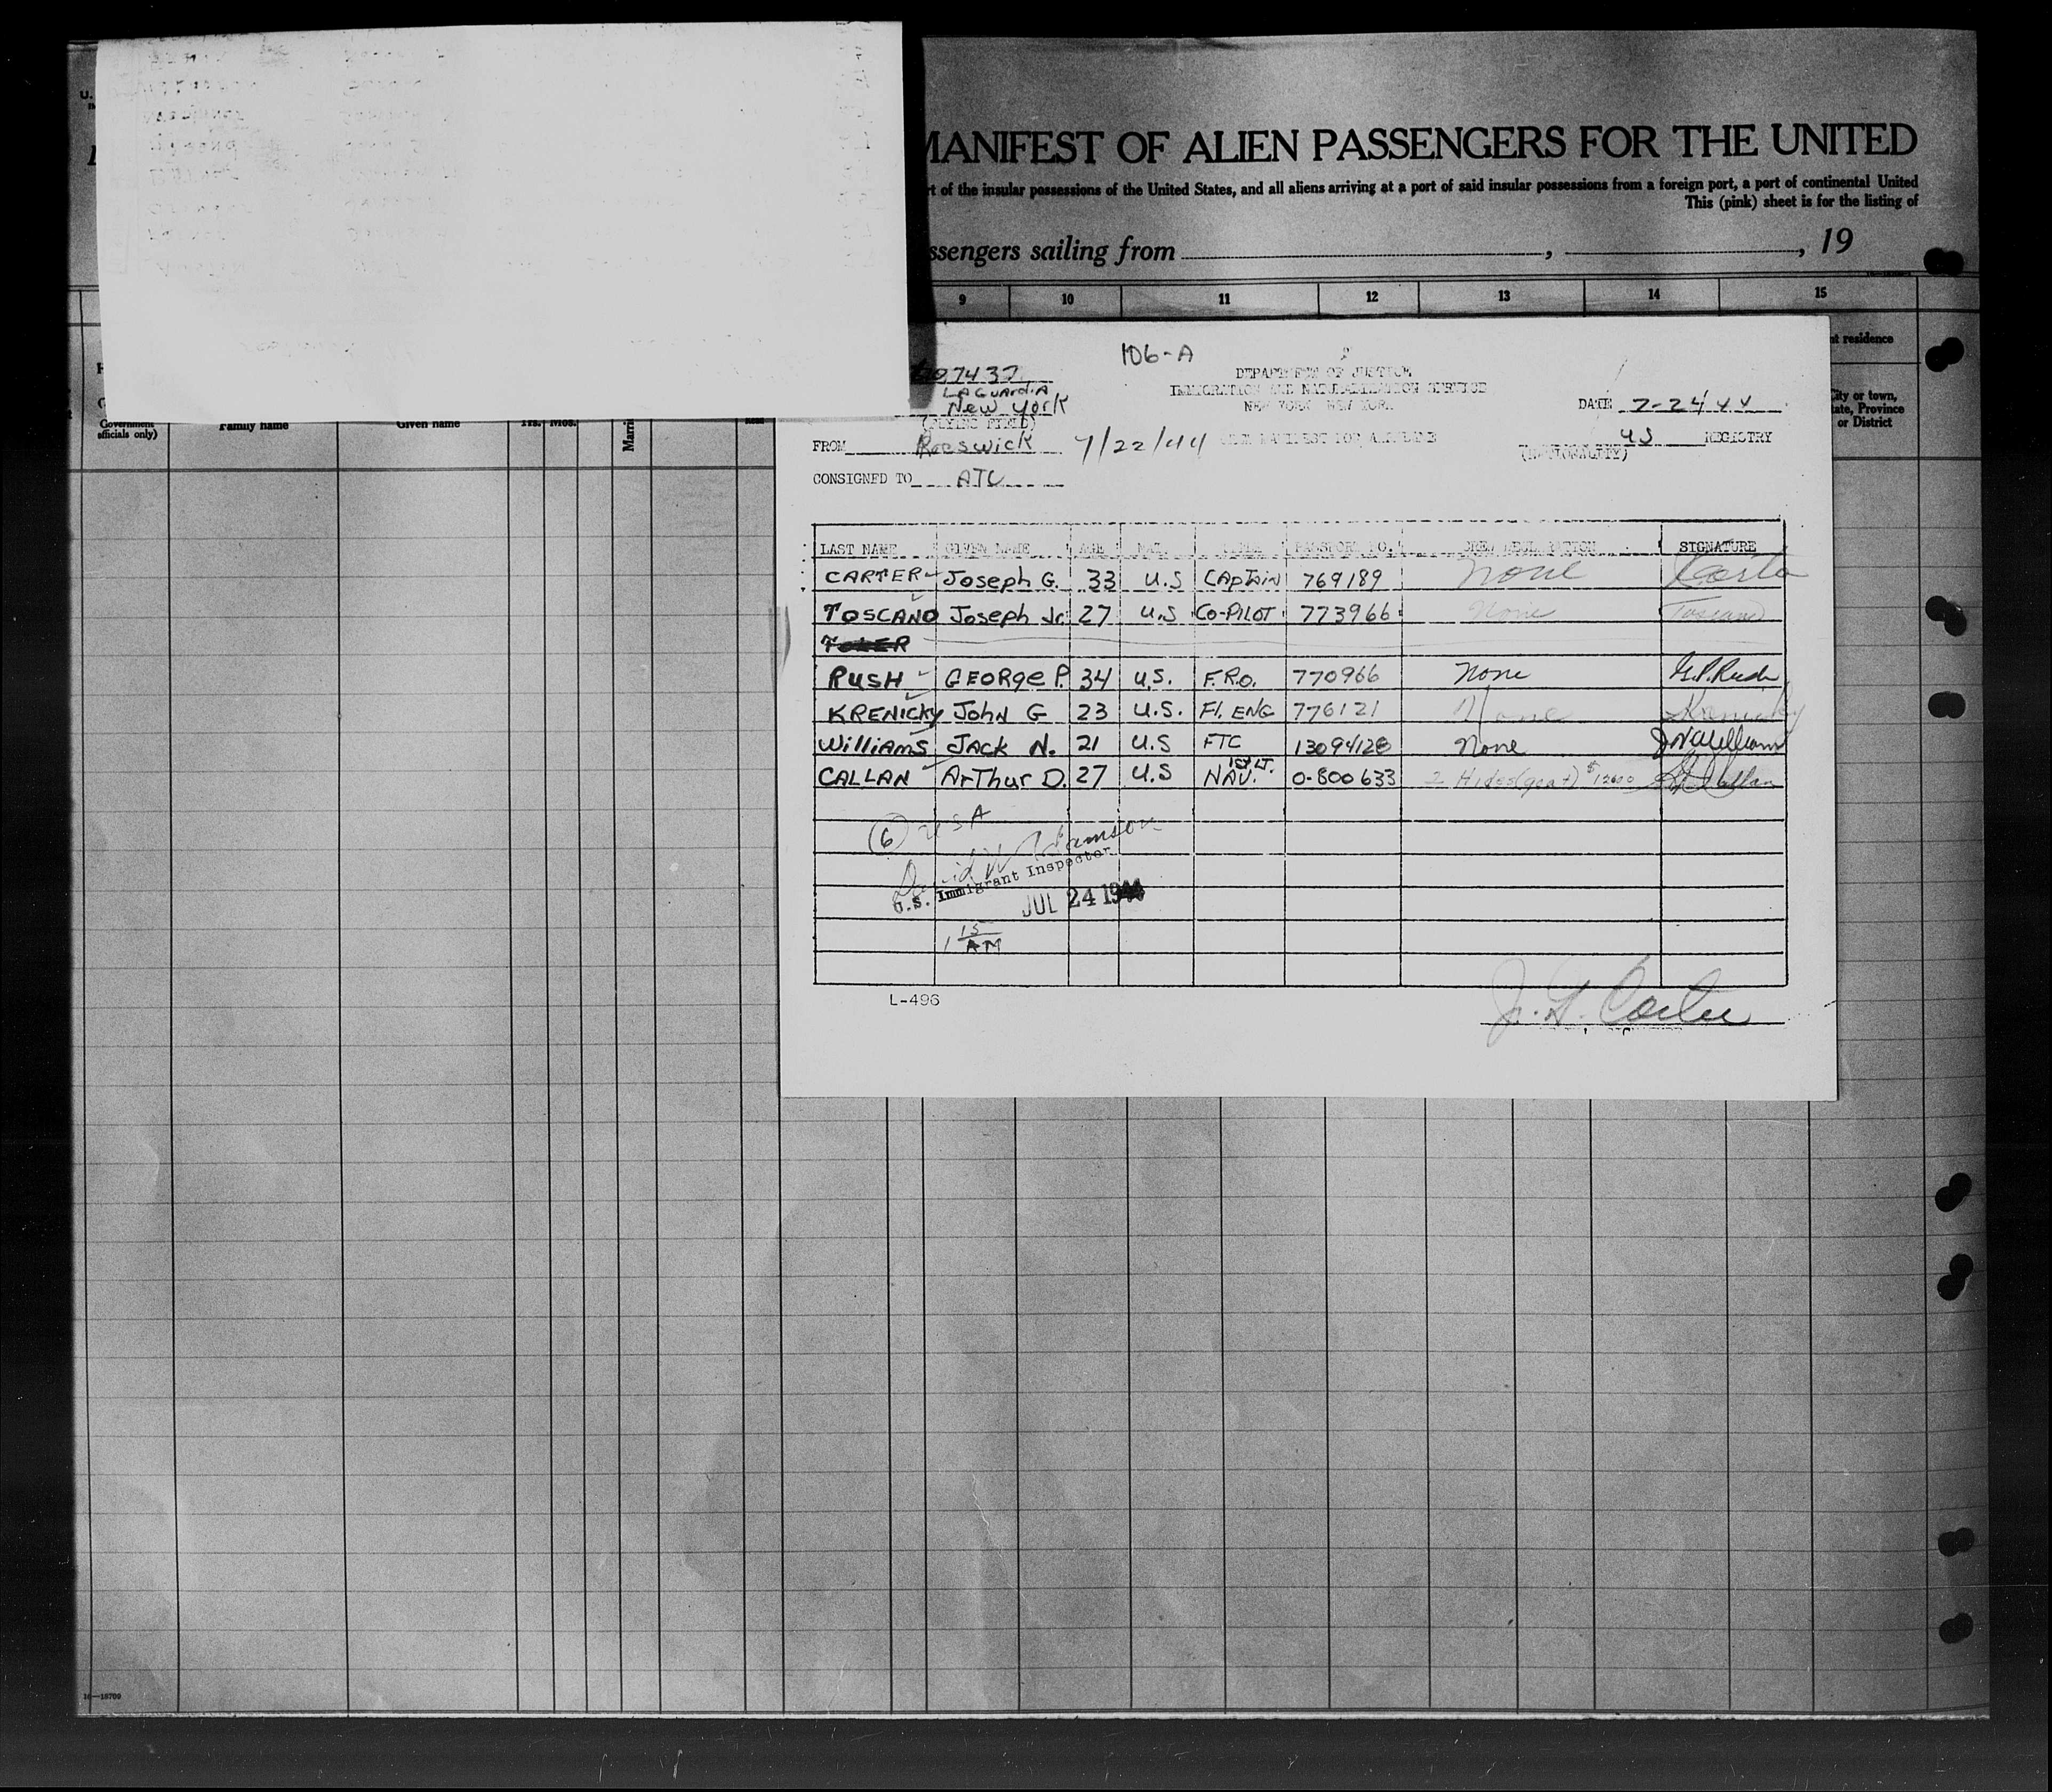 MANIFEST OF ALIEN PASSENGERS FOR THE UNITED
rt of the insular possessions of the United States, and all aliens arriving at a port of said insular possessions from a foreign port, a port of continental United
This (pink) sheet is for the listing of
ssengers sailing from , , 19
9 10 11 12 13 14 15
nt residence
City or town,
ate, Province
or District
Government
officials only)
Family name Given name Yrs. Mos. Marri
106-A
07437
DEPARTMENT OF JUSTICE
LAGUARDIA
IMMIGRATION AND NATURALIZATION SERVICE
New York
NEW YORK NEW YORK
DATE 7-24 44
(FLYING FIELD)
FROM Preswick 7/22/44 MANIFEST FOR AIRPLANE
US REGISTRY
(NATIONALITY)
CONSIGNED TO ATC
LAST NAME GIVEN NAME AGE NAT. PASSPORT NO. CREW DECLARATION SIGNATURE
CARTER Joseph G. 33 U.S CAptAin 769189 None Carter
TOSCANO Joseph Jr. 27 U.S CO-PILOT 773966 None Toscano
RUSH GEORge P. 34 U.S. F.R.O. 770966 None G.P. Rush
KRENICKY JohN G 23 U.S. Fl. ENG 776121 None Krenicky
Williams JACK N. 21 U.S FTC 13094128 None JN Williams
CALLAN ArThur D. 27 U.S 1st LT. NAV. 0-800633 2 Hides (goat) $ Callan
(6) USA
David W Adamson
U.S. Immigrant Inspector
JUL 24 1944
1 15
AM
L-496
J. G. Carter
16—18700